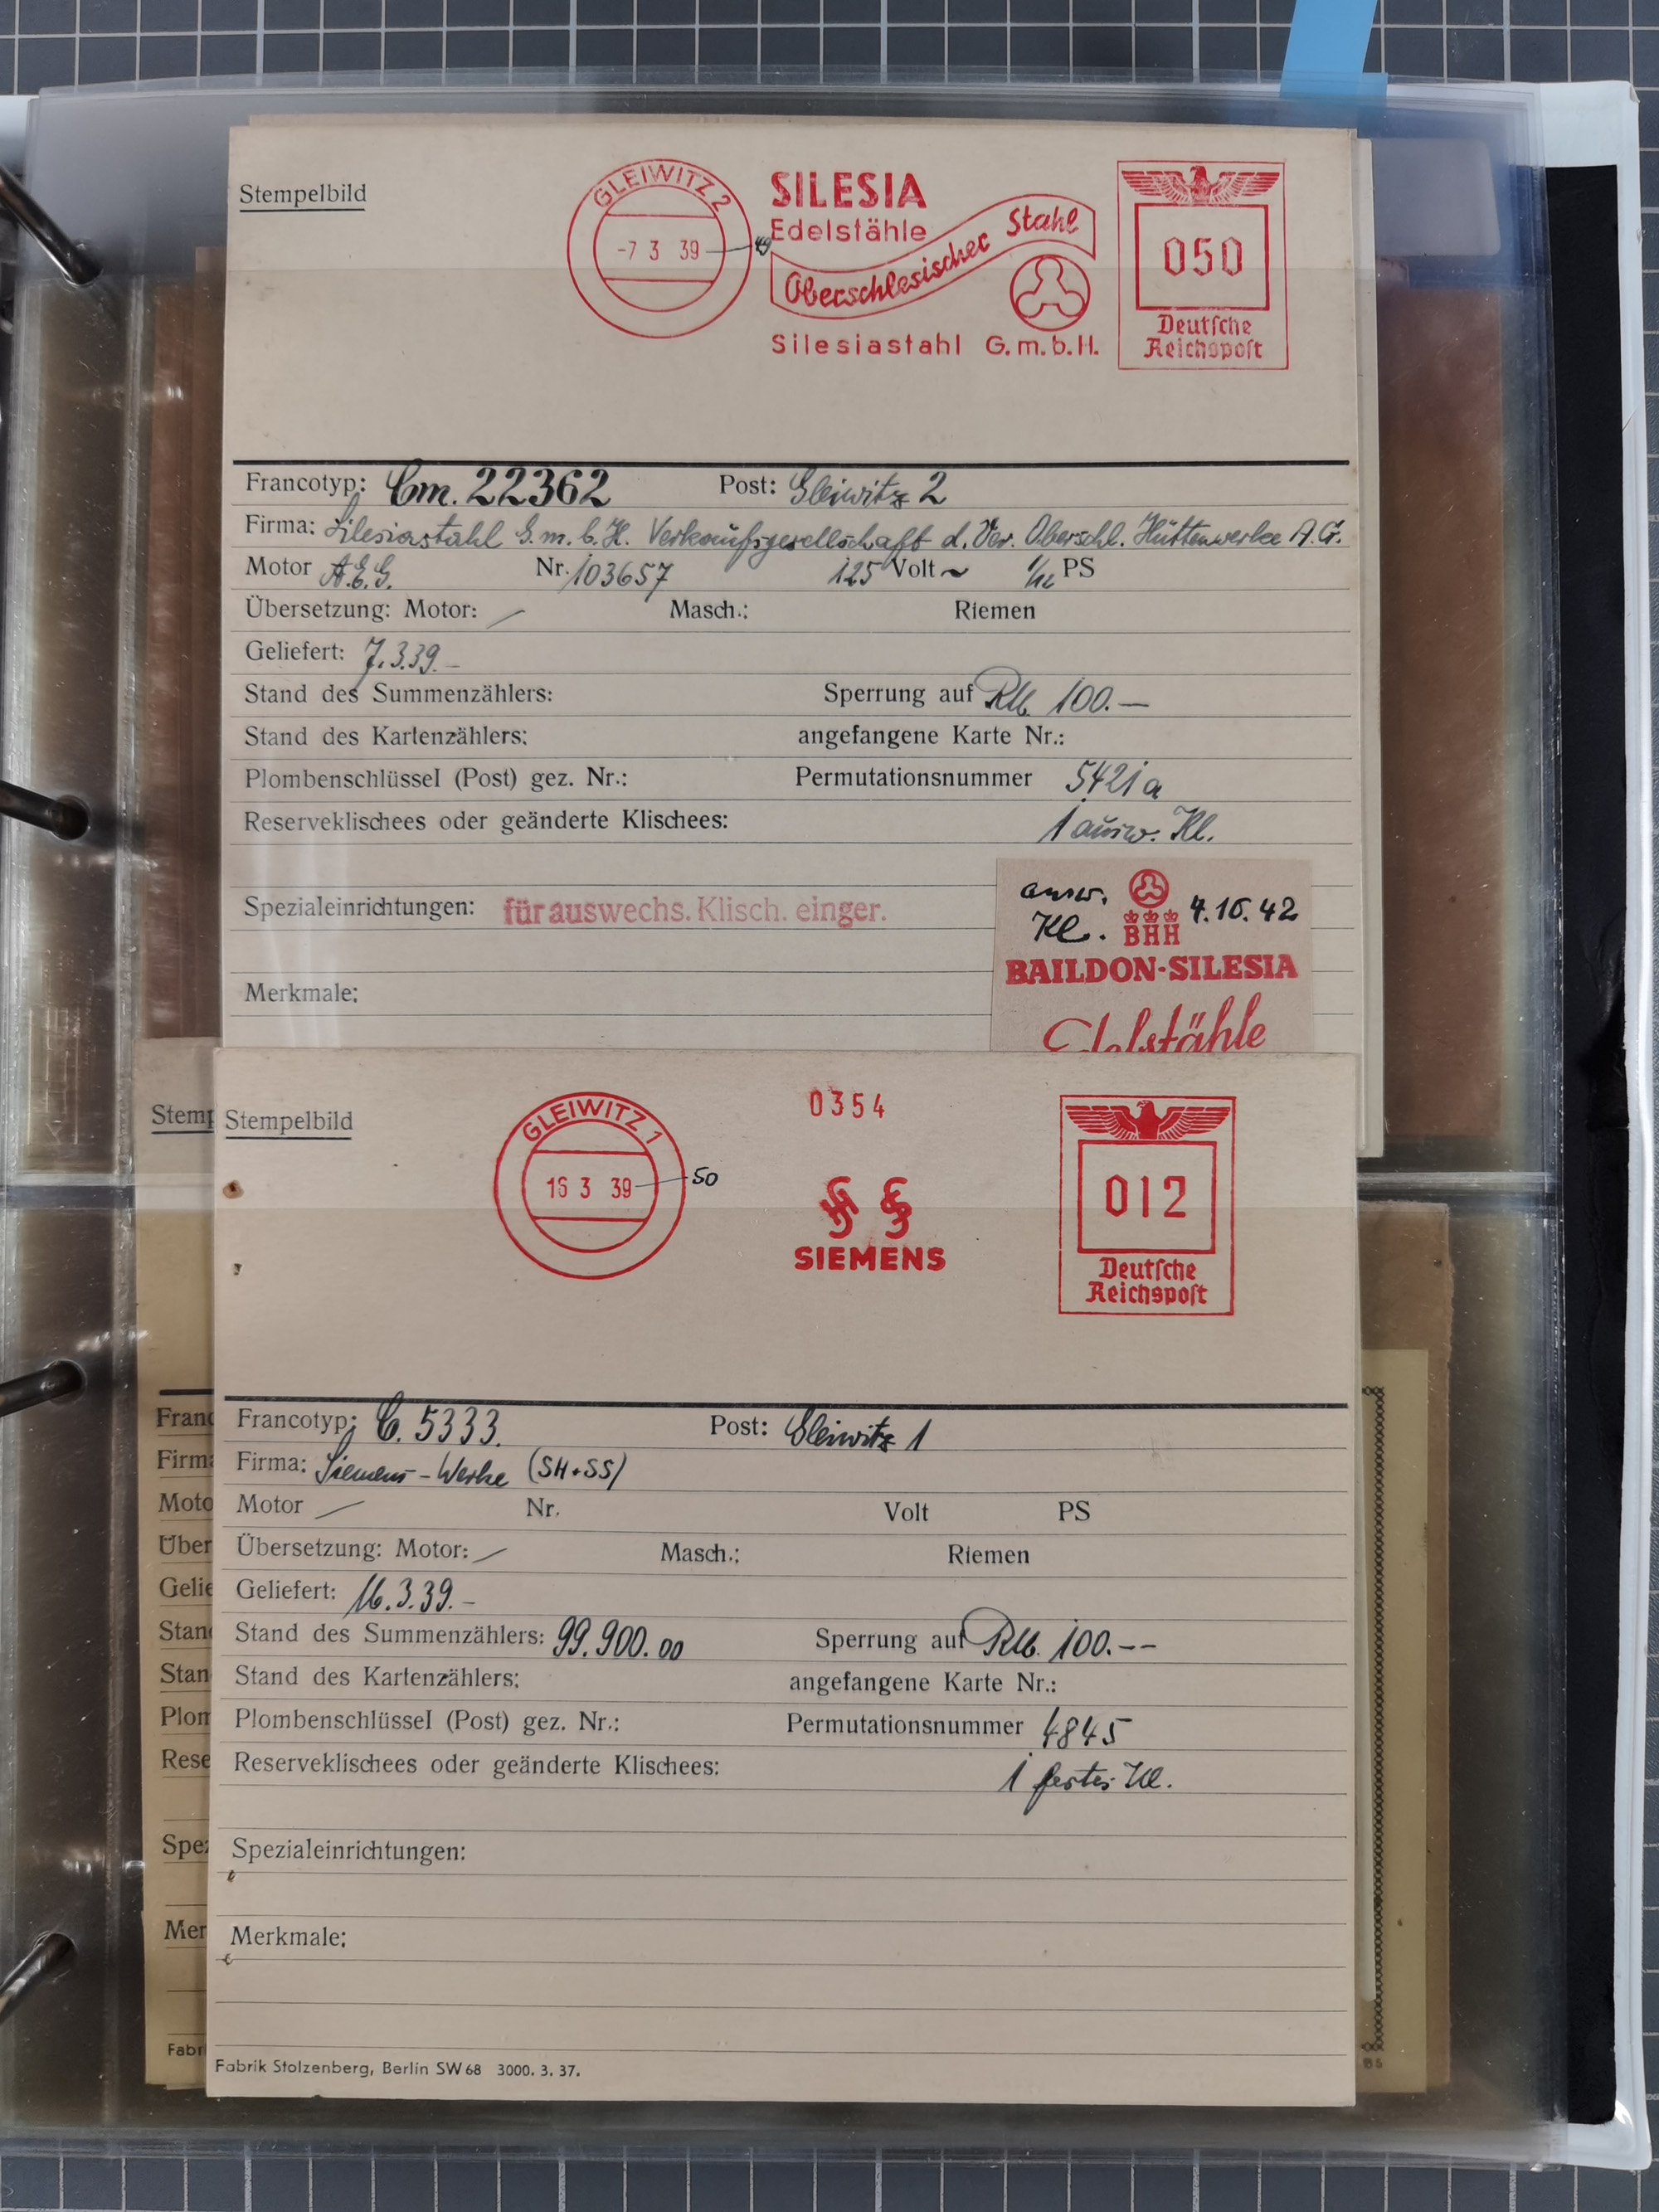 Stempelbild
GLEIWITZ 2
-7 3 39
49
SILESIA
Edelstähle
Oberschlesischer Stahl
Silesiastahl G.m.b.H.
050
Deutsche
Reichspost
Francotyp: Cm. 22362 Post: Gleiwitz 2
Firma: Silesiastahl G.m.b.H. Verkaufsgesellschaft d. Ver. Oberschl. Hüttenwerke A.G.
Motor A.E.G. Nr. 103657 125 Volt ~ PS
Übersetzung: Motor: — Masch.: Riemen
Geliefert: 7.3.39.–
Stand des Summenzählers: Sperrung auf RM. 100.—
Stand des Kartenzählers: angefangene Karte Nr.:
Plombenschlüssel (Post) gez. Nr.: Permutationsnummer 5421a
Reserveklischees oder geänderte Klischees: 1 ausw. Kl.
Spezialeinrichtungen: für auswechs. Klisch. einger.
ausw. Kl. 4.10.42
BHH
BAILDON-SILESIA
Edelstähle
Merkmale:
Stemp
Stempelbild
GLEIWITZ 1
16 3 39
50
0354
SIEMENS
012
Deutsche
Reichspost
Franc
Francotyp: C. 5333. Post: Gleiwitz 1
Firma
Firma: Siemens-Werke (SH+SS)
Moto
Motor — Nr. Volt PS
Über
Übersetzung: Motor: — Masch.: Riemen
Gelie
Geliefert: 16.3.39.–
Stand
Stand des Summenzählers: 99.900.00 Sperrung auf RM. 100.--
Stan
Stand des Kartenzählers: angefangene Karte Nr.:
Plom
Plombenschlüssel (Post) gez. Nr.: Permutationsnummer 4845
Rese
Reserveklischees oder geänderte Klischees: 1 festes Kl.
Spez
Spezialeinrichtungen:
Mer
Merkmale:
Fabri
Fabrik Stolzenberg, Berlin SW 68 3000. 3. 37.